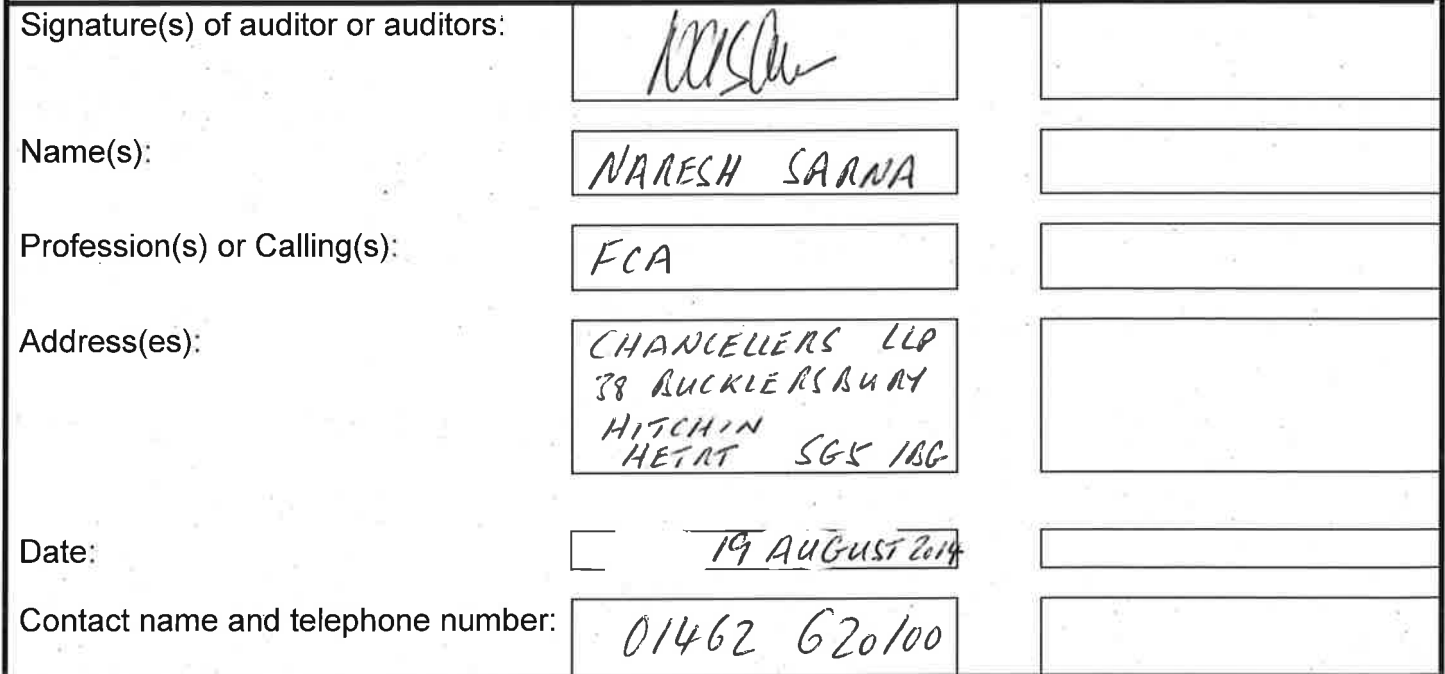 Signature(s) of auditor or auditors:
Name(s): NARESH SARNA
Profession(s) or Calling(s): FCA
Address(es): CHANCELLERS LLP
38 BUCKLERSBURY
HITCHIN
SG5 1BG
Date: 19 AUGUST 2014
Contact name and telephone number: 01462 620100